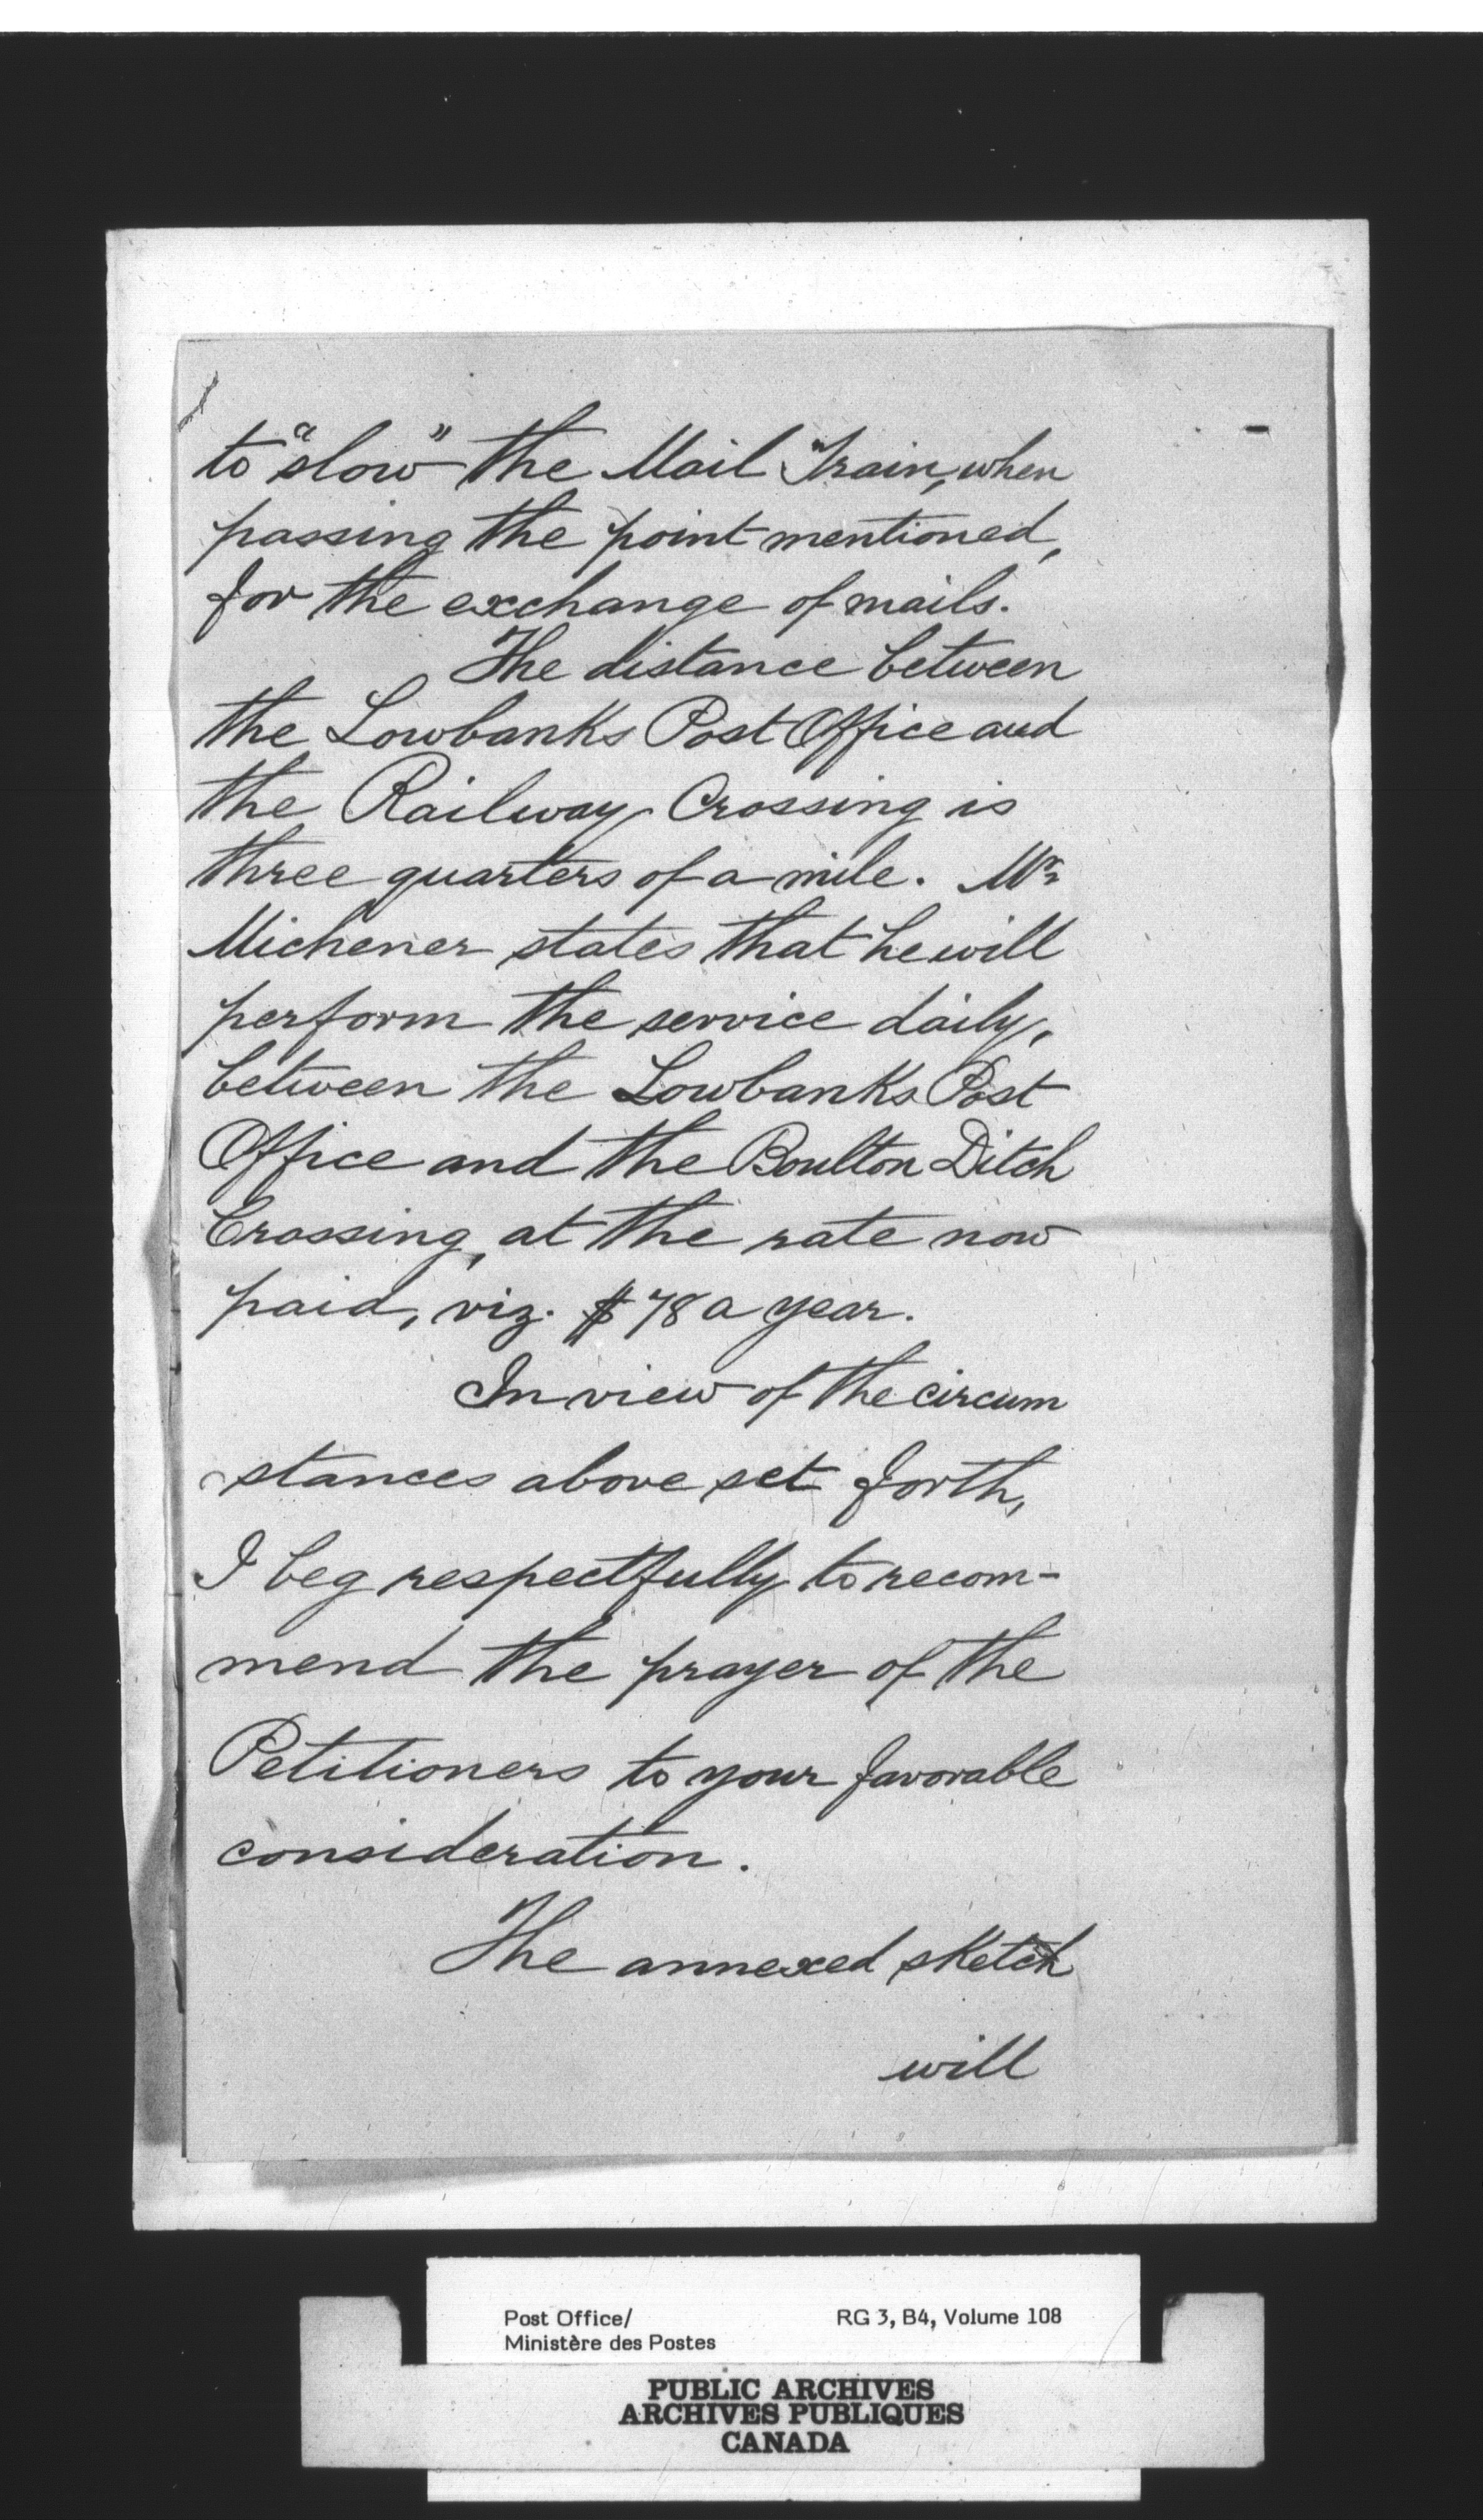 to "slow" the Mail Train, when
passing the point mentioned,
for the exchange of mails.
The distance between
the Lowbanks Post Office and
the Railway Crossing is
three quarters of a mile. Mr
Michener states that he will
perform the service daily,
between the Lowbanks Post
Office and the Boulton Ditch
Crossing, at the rate now
paid, viz. $78 a year.
In view of the circum
stances above set forth,
I beg respectfully to recom-
mend the prayer of the
Petitioners to your favorable
consideration.
The annexed sketch
will
Post Office/ RG 3, B4, Volume 108
Ministère des Postes
PUBLIC ARCHIVES
ARCHIVES PUBLIQUES
CANADA